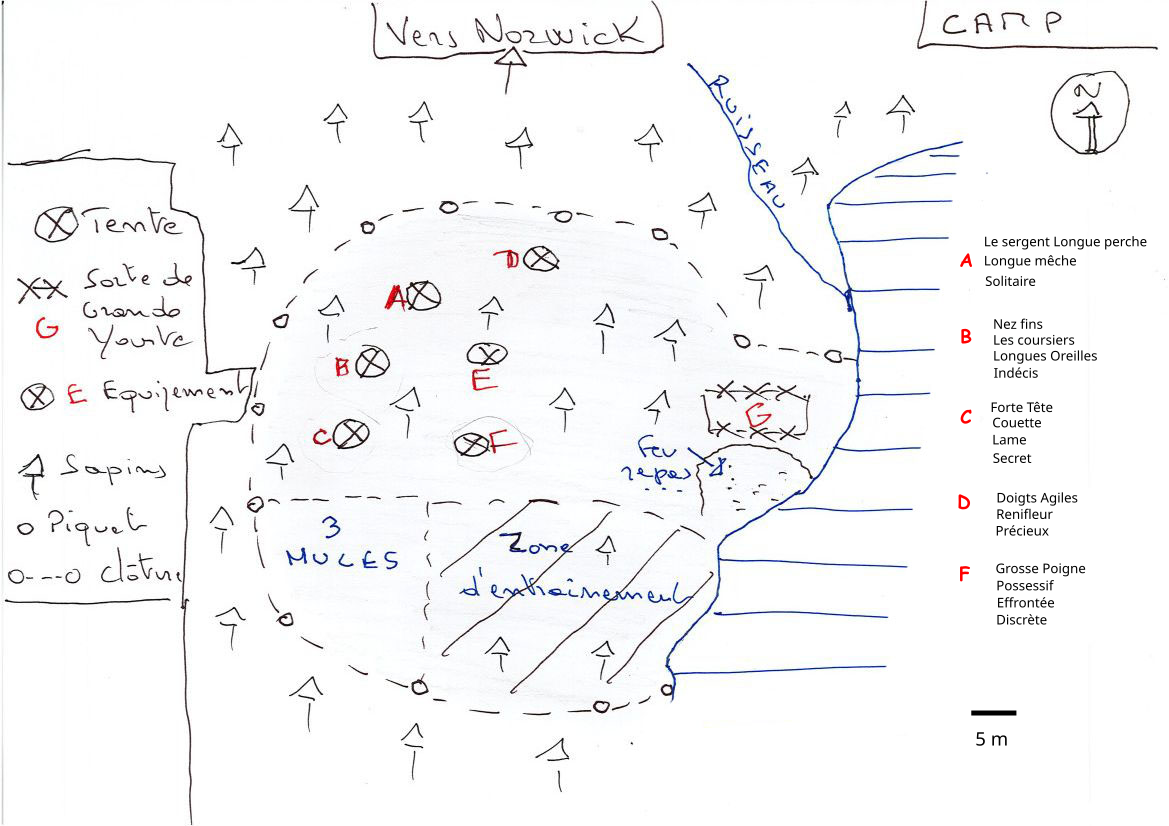 Vers Norwick
CAMP
N
RUISSEAU
Tente
Sorte de
Grande
G Yourte
E Equipement
Sapins
Piquet
Clôture
D
A
B
E
C
F
G
Feu
repas
3
MULES
Zone
d'entrainement
Le sergent Longue perche
A Longue mêche
Solitaire
Nez fins
B Les coursiers
Longues Oreilles
Indécis
Forte Tête
C Couette
Lame
Secret
D Doigts Agiles
Renifleur
Précieux
F Grosse Poigne
Possessif
Effrontée
Discrète
5 m